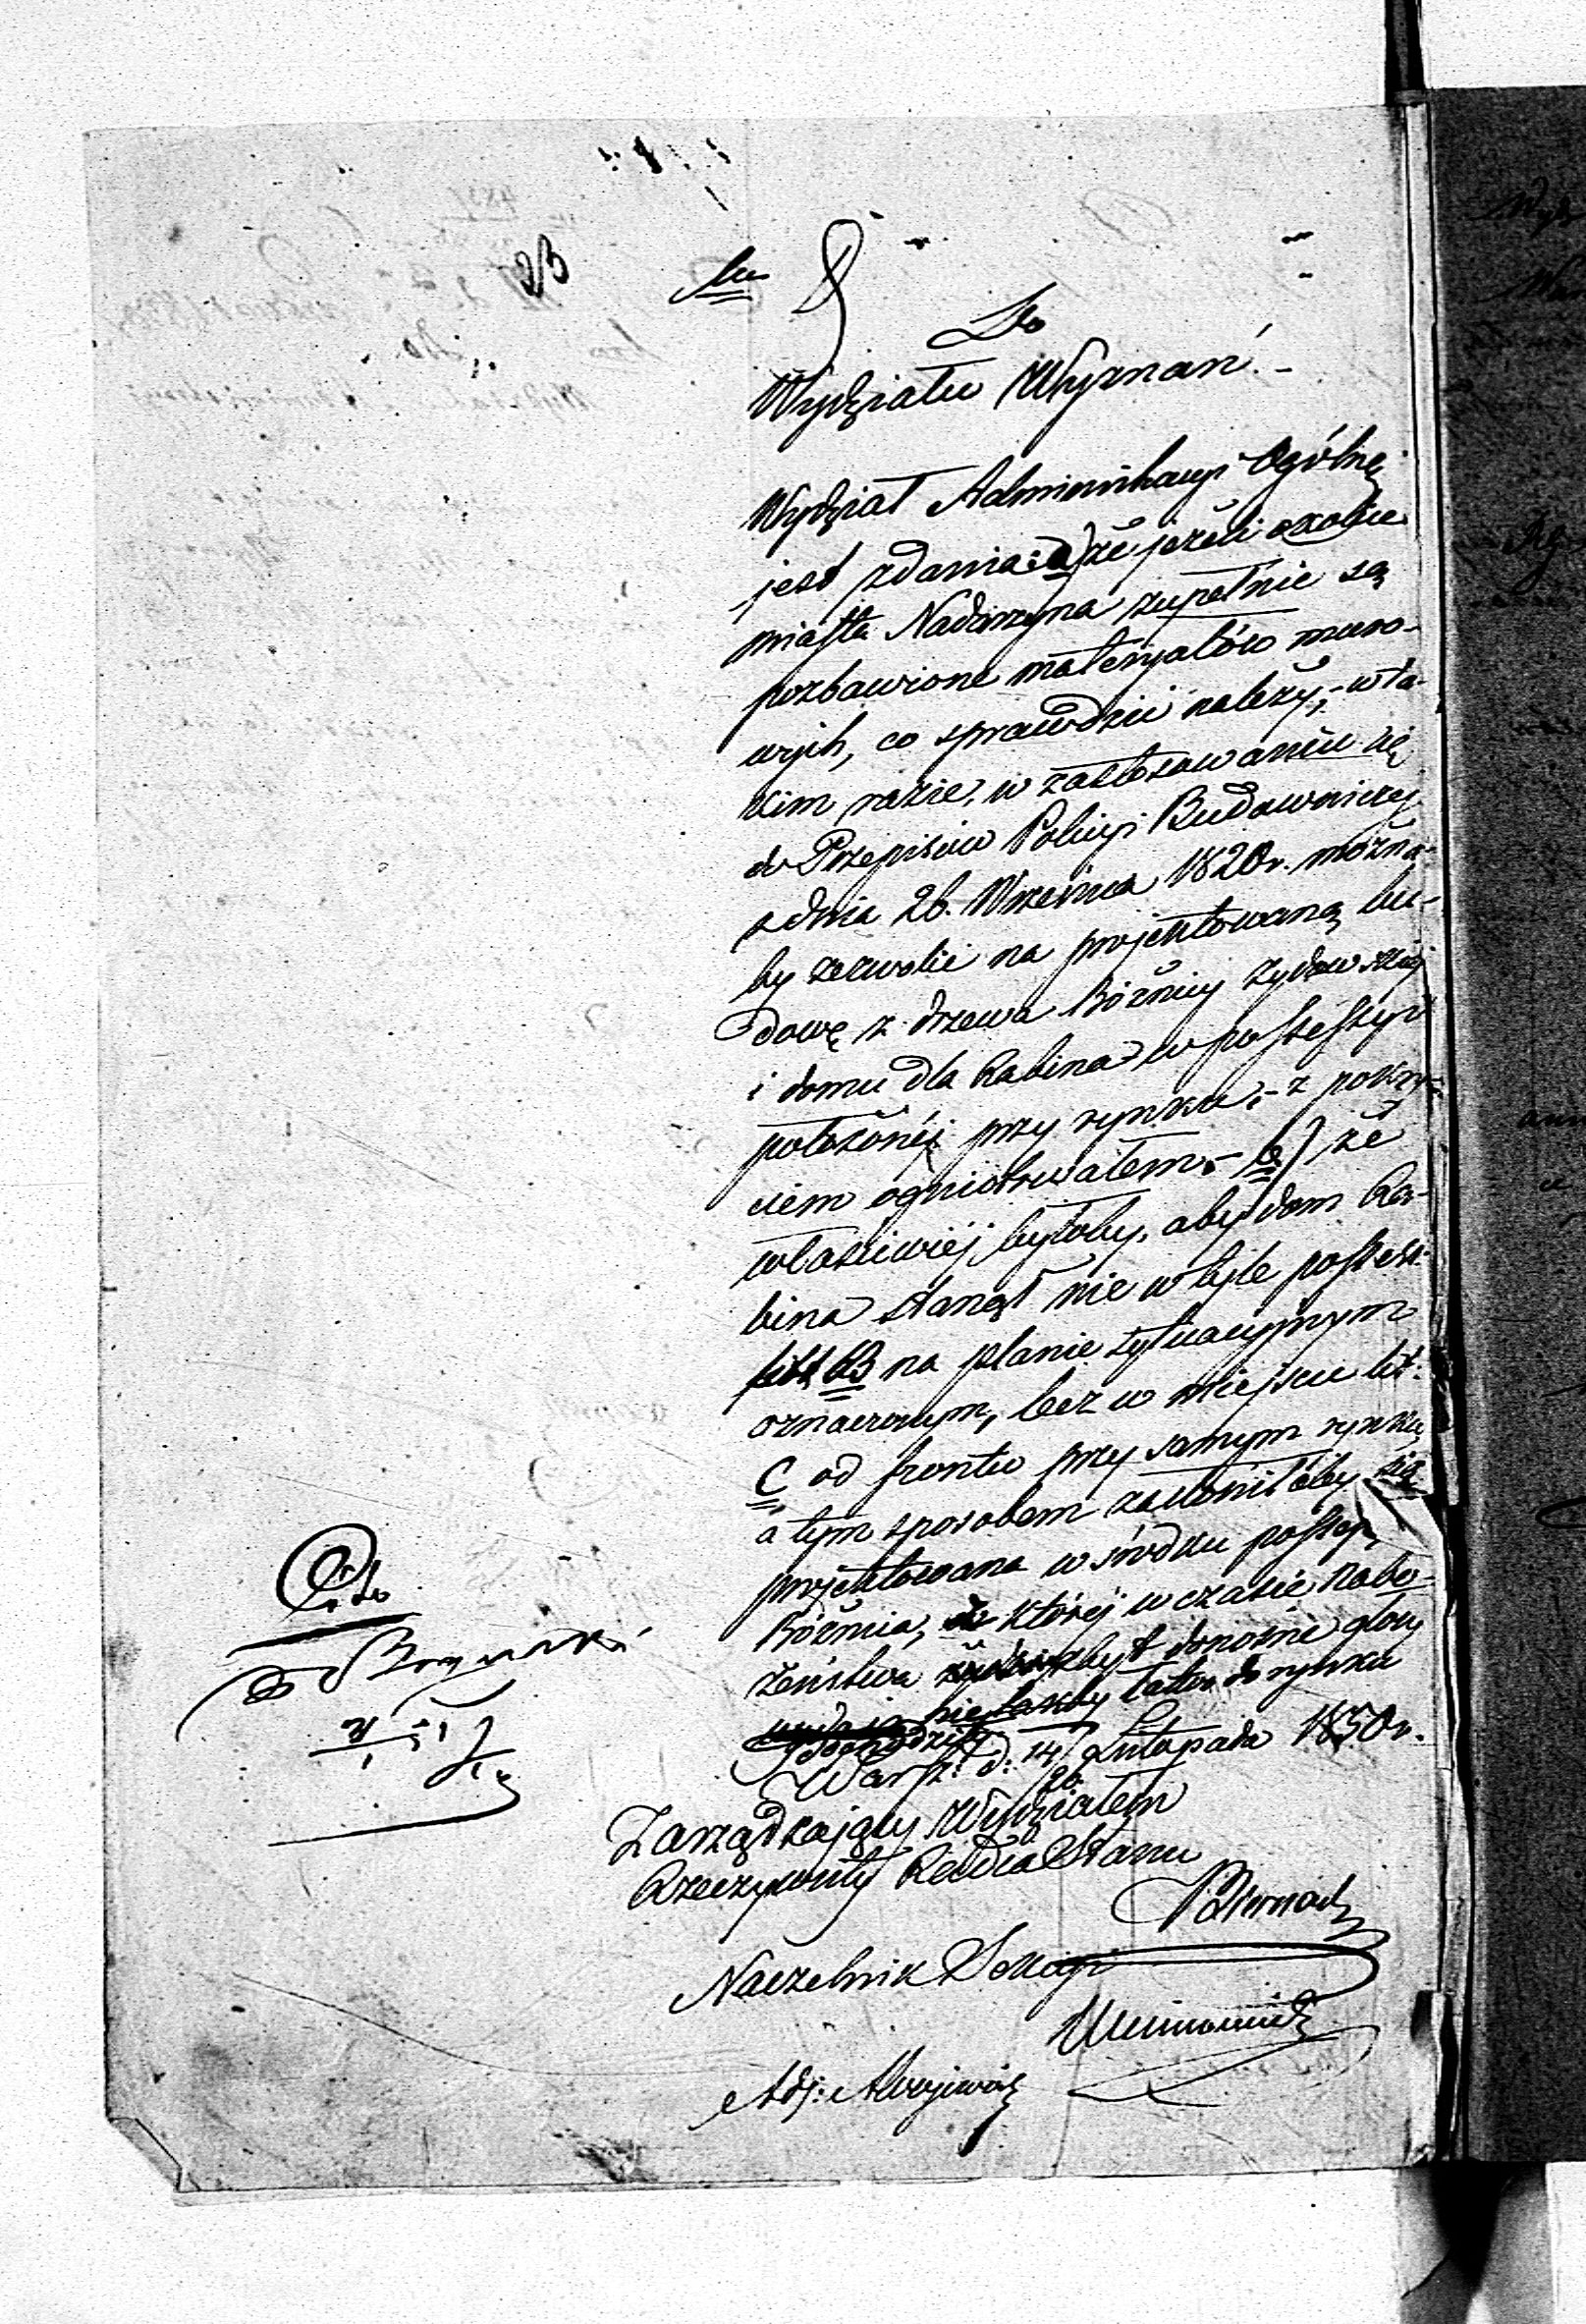 23
Do
Wydziału Wyznań.-
Wydział Administracyi Ogólnéj
jest zdania: a) że jeżeli okolice
miasta Nadarzyna zupełnie są
pozbawione materyałów muro-
wych, co sprawdzić należy,- w ta-
kim razie, w zastosowaniu się
do Przepisów Policyi Budowniczej
z dnia 26. Września 1820 r. można-
by zezwolić na projektowaną bu-
dowę z drzewa Bóżnicy żydowskiej
i domu dla Rabina w possessyi
położonéj przy rynku,- z pokry-
ciem ogniotrwałem.- b) że
właściwiéj byłoby, aby dom Ra-
bina stanął nie w tyle possess:
litt B na planie sytuacyjnym
oznaczonym, lecz w miejscu lit:
C od frontu przy samym rynku,
a tym sposobem zasłoniłaby się
projektowana w środku possesyi
Bóżnia, z któréj w czasie nabo-
żeństwa zbyt donośne głosy
nie łatwo do rynku
dochodziły
Warsz: d: 14/26 Listopada 1850 r.
Zarządzający Wydziałem
Rzeczywisty Radca Stanu
Naczelnik Sekcyi
Adj:
Cito